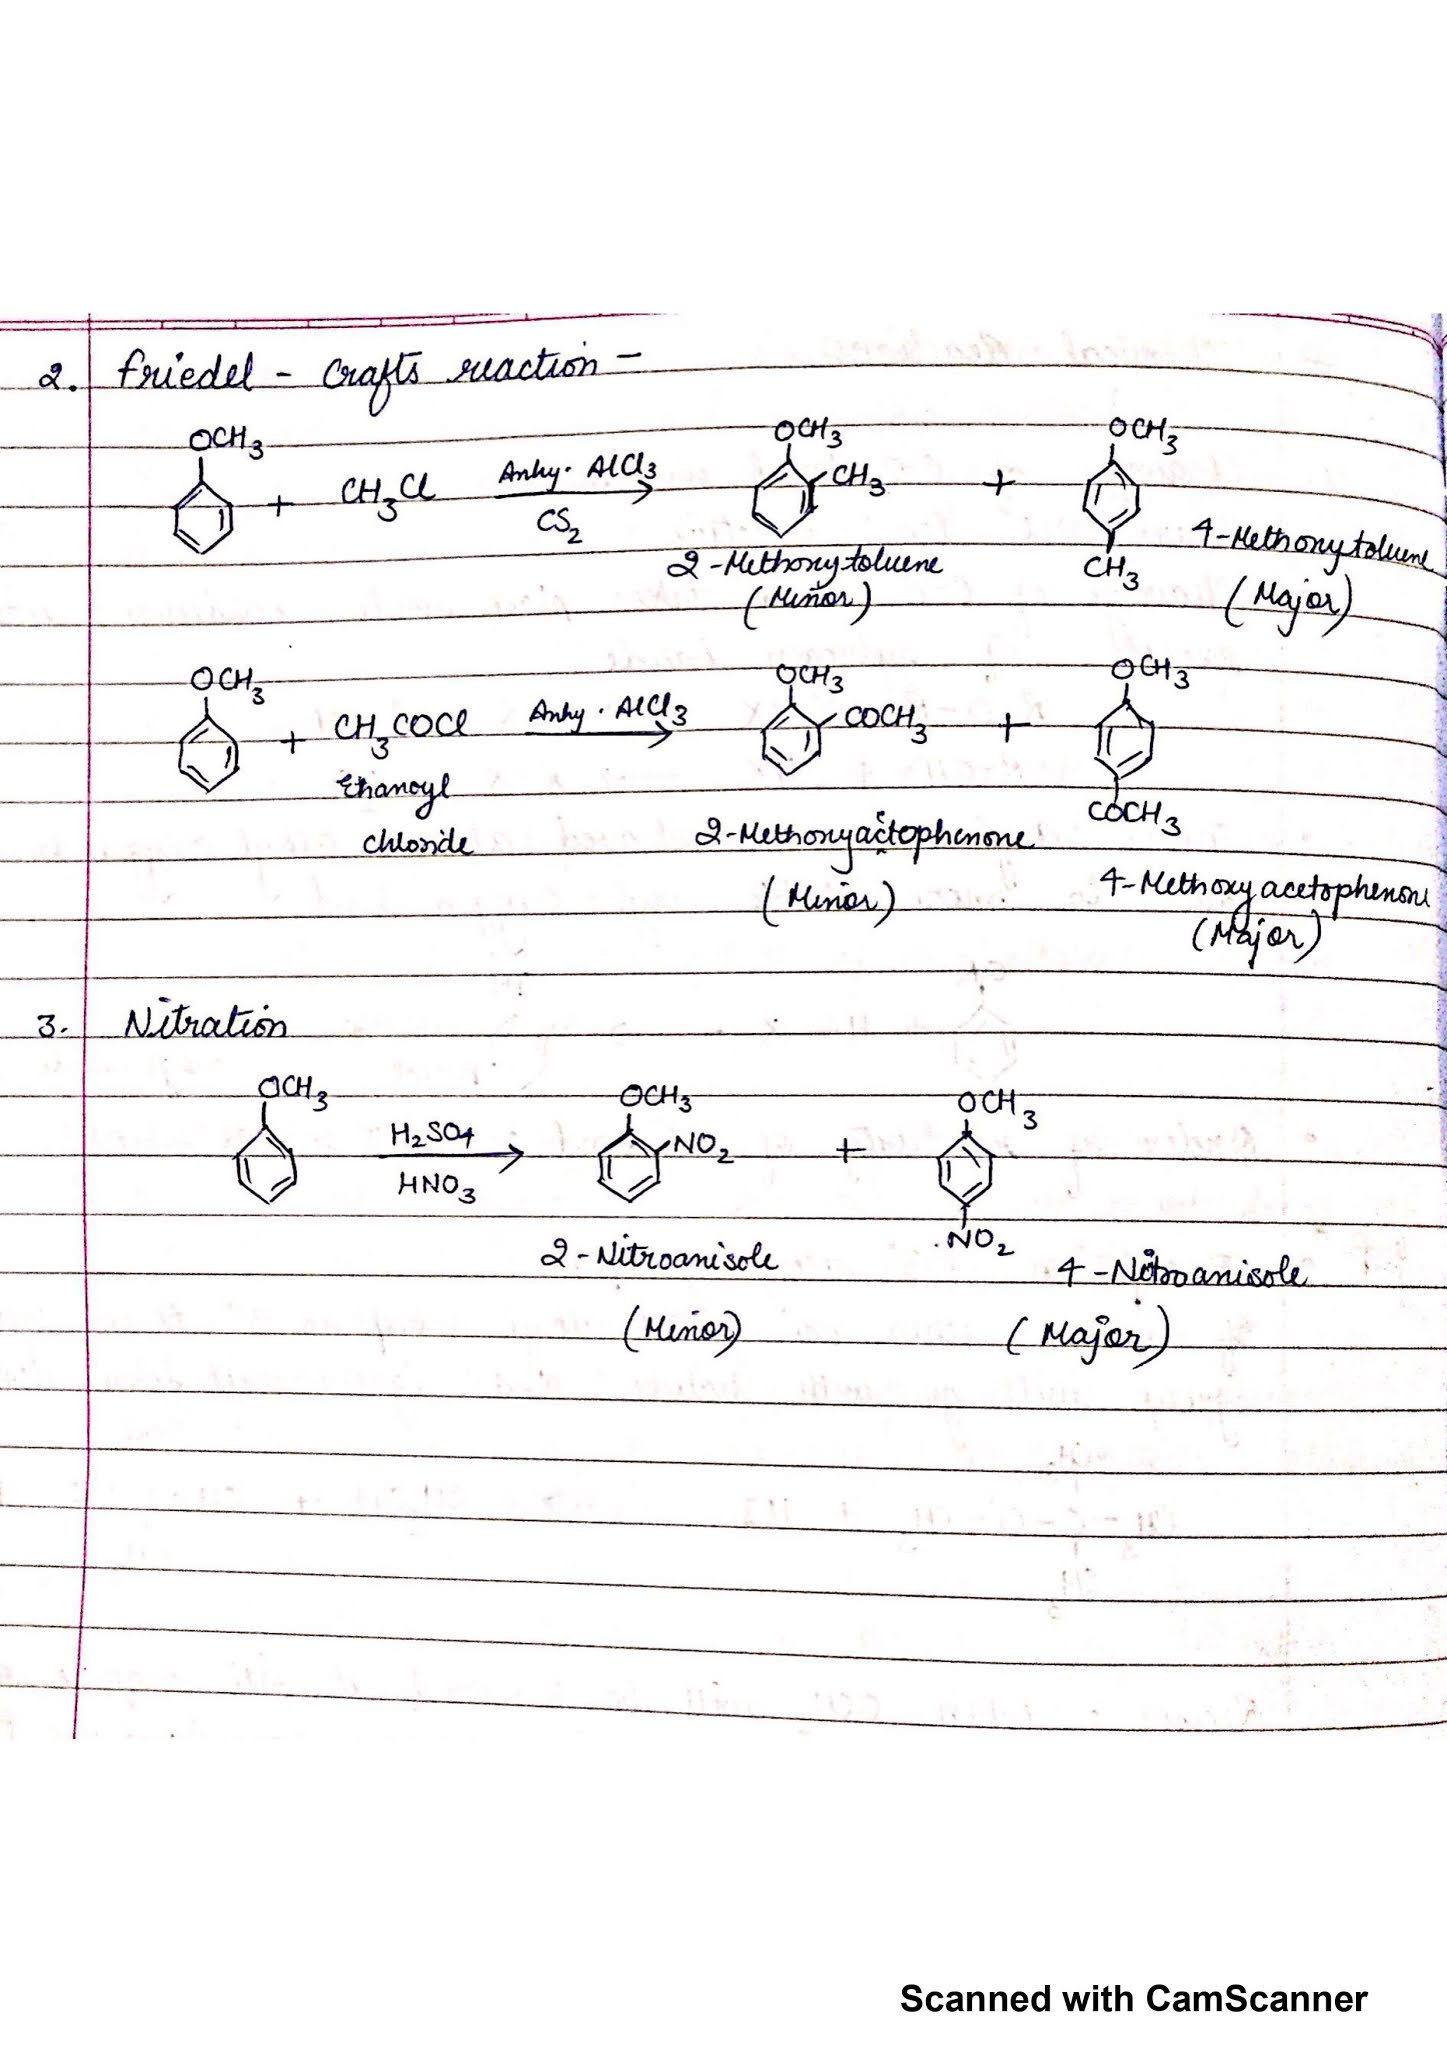 2. Friedel - Crafts reaction -
OCH3 + CH3Cl Anhy. AlCl3 CS2 OCH3 CH3 + OCH3 CH3
2-Methoxytoluene (Minor) 4-Methoxytoluene (Major)
OCH3 + CH3COCl Anhy. AlCl3 OCH3 COCH3 + OCH3 COCH3
Ethanoyl
chloride
2-Methoxyacetophenone
(Minor)
4-Methoxyacetophenone
(Major)
3. Nitration
OCH3 H2SO4 HNO3 OCH3 NO2 + OCH3 NO2
2-Nitroanisole 4-Nitroanisole
(Minor) (Major)
Scanned with CamScanner